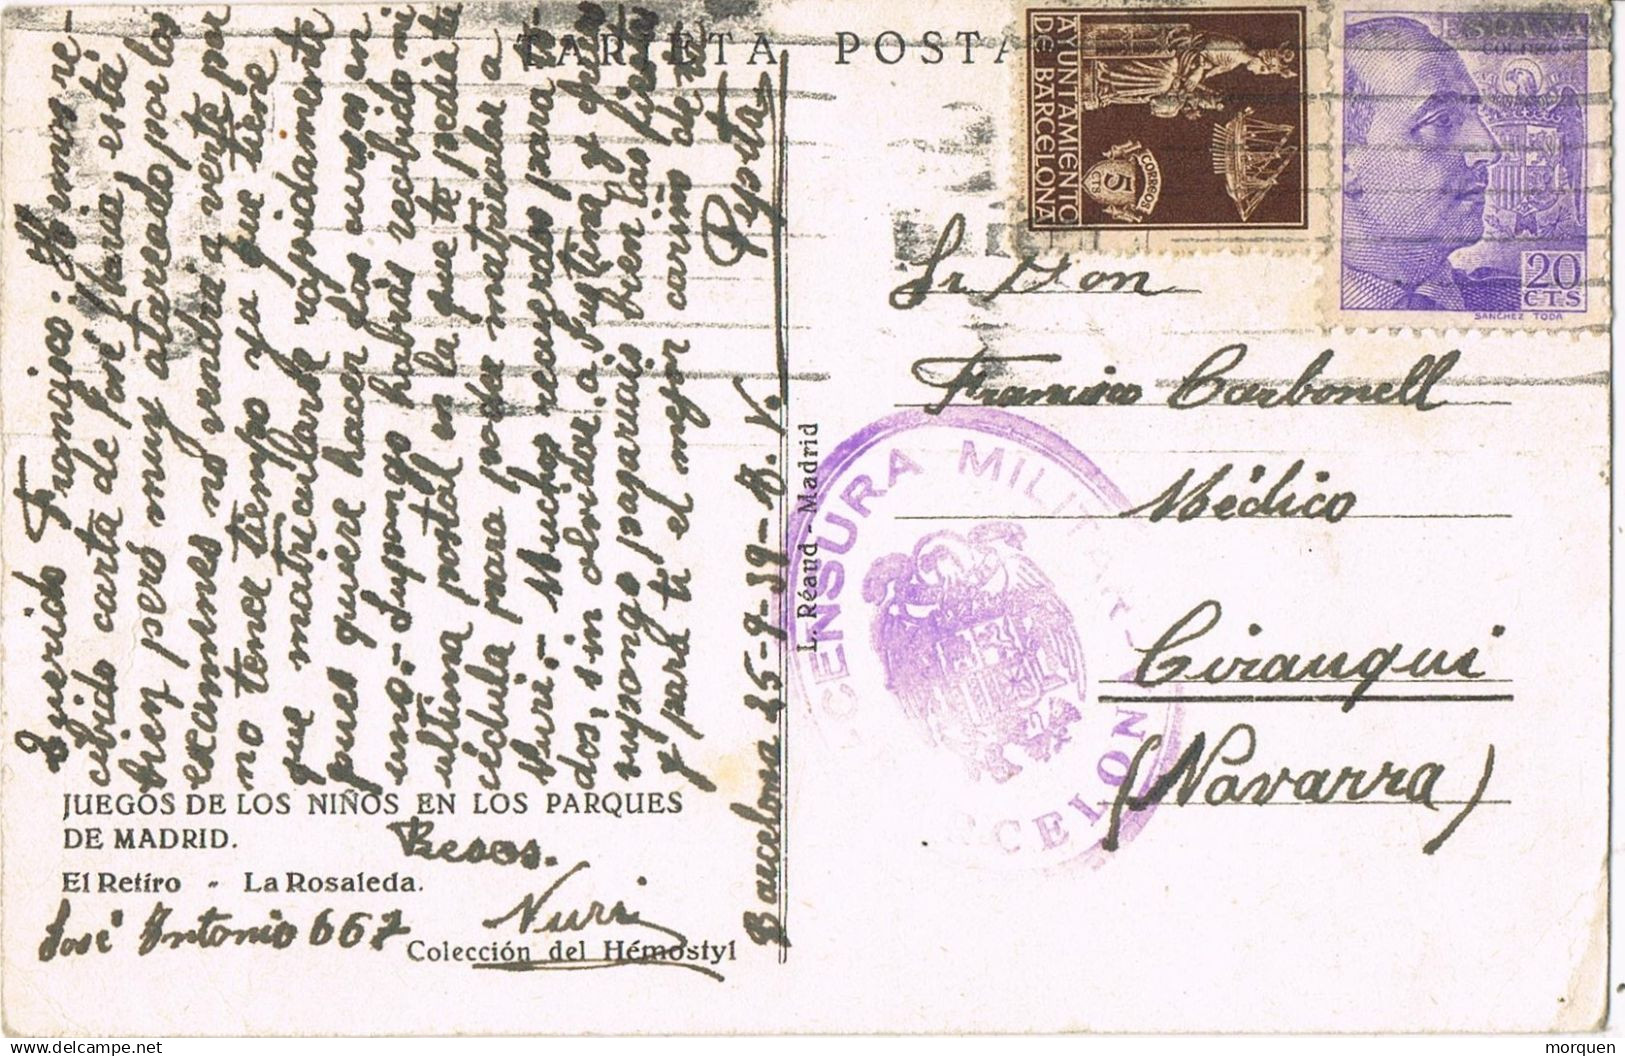 TARJETA POSTA
AYUNTAMIENTO
DE BARCELONA
CORREOS
5
CTS
ESPAÑA
CORREOS
20
CTS
SANCHEZ TODA
Querido Francisco: Hemos re-
cibido carta de José Maria está
bien pero muy atareado por los
examenes no vendrá a verte por
no tener tiempo ya que tiene
que matricularse rapidamente
pues quiere hacer dos cursos en
uno.- Supongo habrás recibido mi
ultima postal en la que te pedia tu
cédula para poder matricular a
Nuri.- Muchos recuerdos para to-
dos, sin olvidar a
supongo pasariais bien las fiestas
y para tí el mejor cariño de tu
Pepita
Barcelona 25-9-39-A. V.
Sr Don
Francisco Carbonell
Médico
Cirauqui
(Navarra)
CENSURA MILITAR
BARCELONA
L. Réaud - Madrid
JUEGOS DE LOS NIÑOS EN LOS PARQUES
DE MADRID.
Besos.
El Retiro - La Rosaleda.
Nuri
José Antonio 667
Colección del Hémostyl
delcampe.net
morquen